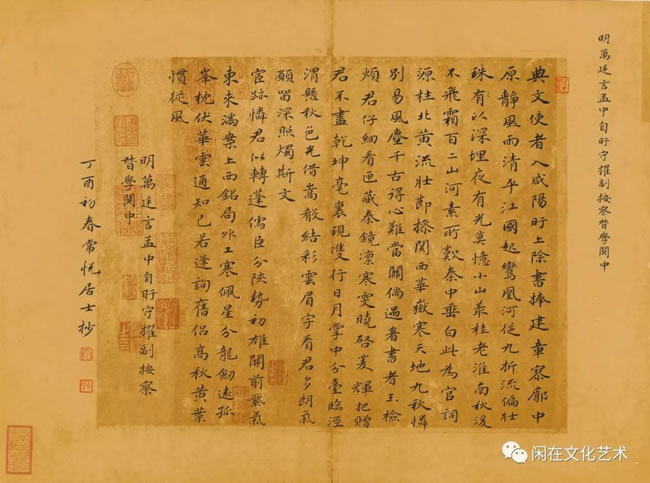 明萬廷言孟中自盱守擢副按察督學關中
典文使者入咸陽盱上除書捧建章寥廓中
原靜風雨清平江國起鸞鳳河從九折流偏壯
珠有以深埋夜有光莫憶小山叢桂老淮南秋湲
不飛霜百二山河素所歎秦中垂白此為官詞
源柱北黃流壯節擁關西華嶽寒天地九秋憐
別易風塵千古得心難當關倘遇著書者玉檢
煩君仔細看匣藏秦鏡凜寒雯曉啓菱輝把贈
君不盡乾坤毫裏現雙行日月掌中分臺臨涇
渭懸秋色光借嵩結彩雲眉宇看君多朗氣
願留深照燭斯文
宦跡憐君似轉蓬儒臣分陝勢初雄關前紫氣
東來滿案上西銘局外工寒佩星分龍劒遠孤
峯枕伏華雲通知己若逢詢舊侶高秋黃葉
慣從風
明萬廷言孟中自盱守擢副按察
督學關中
丁酉初春常悅居士抄
闲在文化艺术